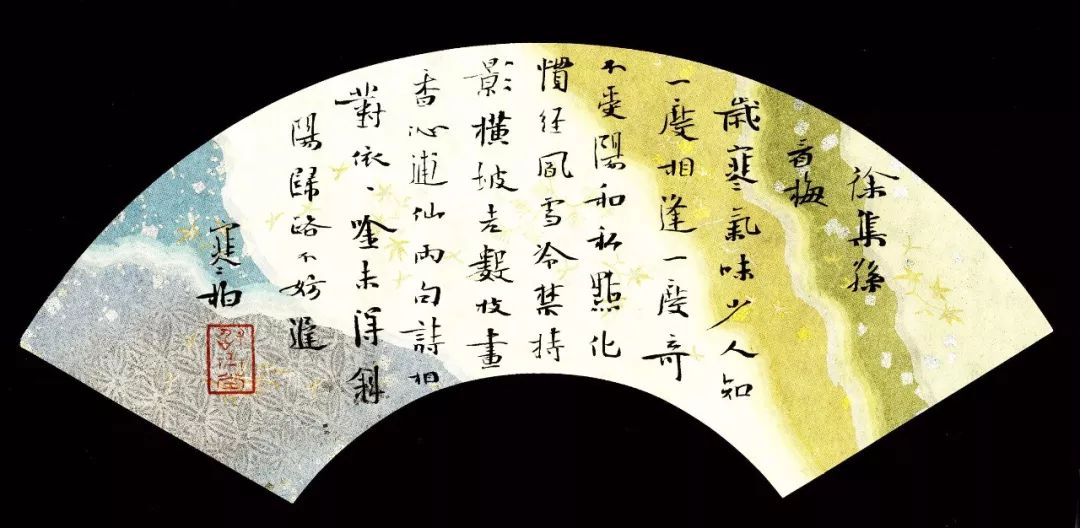 徐集孫
看梅
歲寒氣味少人知
一度相逢一度奇
不受陽和私點化
慣经風雪冷禁持
影橫坡老數枝畫
香沁逋仙兩句詩相
對依〻唫未得斜
陽歸路不妨遲
寒柏